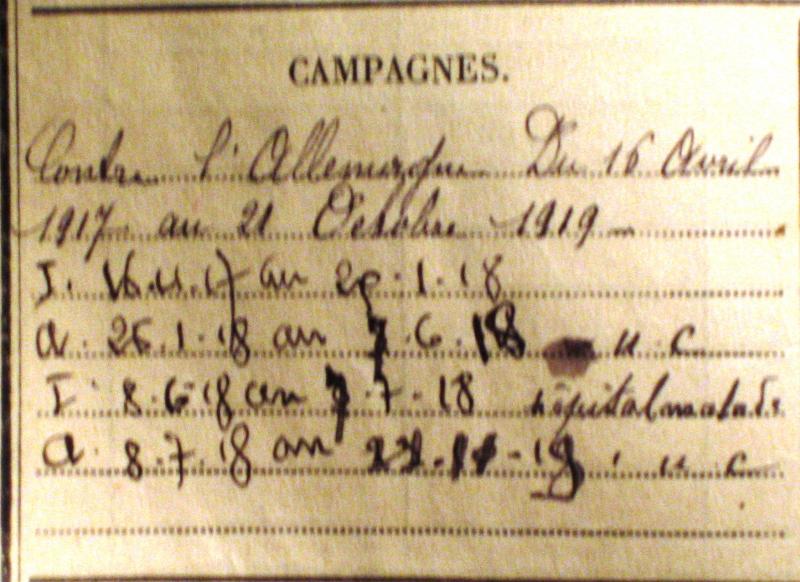 CAMPAGNES.
Contre l'Allemagne Du 16 Avril
1917 au 21 Octobre 1919
I. 16.4.17 au 25.1.18
A. 26.1.18 au 7.6.18 U C
I. 8.6.18 au 7.7.18 hôpital malade
A. 8.7.18 au 18 U C